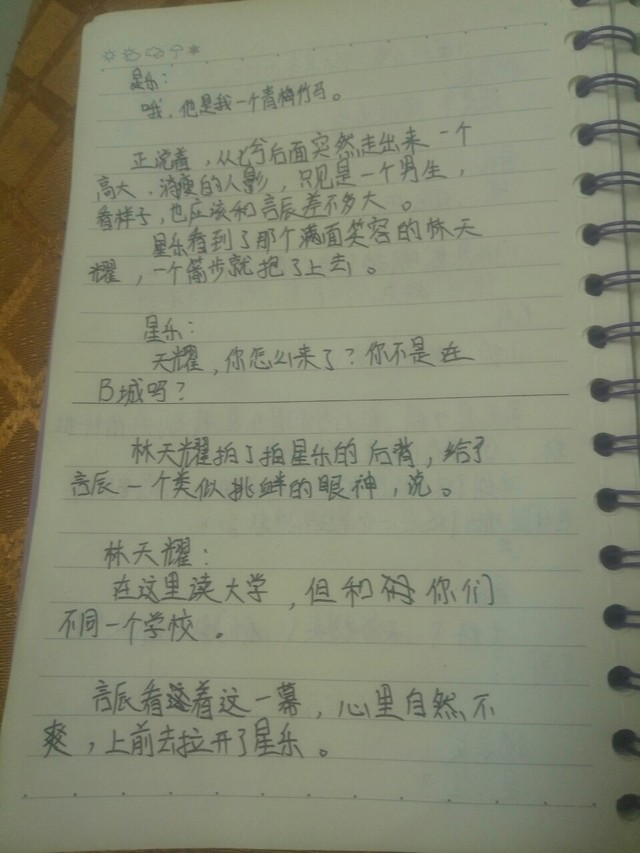 星乐：
哦，他是我一个青梅竹马。
正说着，从后面突然走出来一个
高大、消瘦的人影，只见是一个男生，
看样子，也应该和言辰差不多大。
星乐看到了那个满面笑容的林天
耀，一个箭步就抱了上去。
星乐：
天耀，你怎么来了？你不是在
B城吗？
林天耀拍了拍星乐的后背，给了
言辰一个类似挑衅的眼神，说。
林天耀：
在这里读大学，但和你们
不同一个学校。
言辰看着这一幕，心里自然不
爽，上前去拉开了星乐。